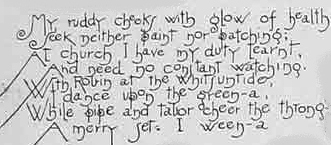 My ruddy cheeks with glow of health
Seek neither paint nor patching;
At church I have my duty learnt,
And need no constant watching.
With Robin at the Whitsuntide,
I dance upon the green-a,
While pipe and tabor cheer the throng
A merry set, I ween-a